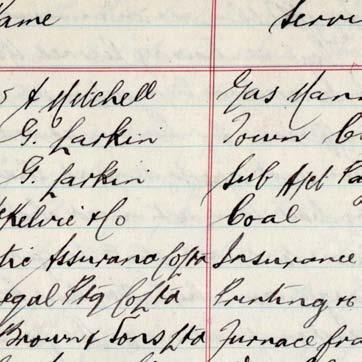 Name Servi
s A Mitchell Gas Man
G. Larkin Town C
G. Larkin Sub A/ct Pa
Kelvie & Co Coal
tic Assurance Co Ltd Insurance
egal Ptg Co Ltd Printing &c
Brown & Sons Ltd Furnace fra